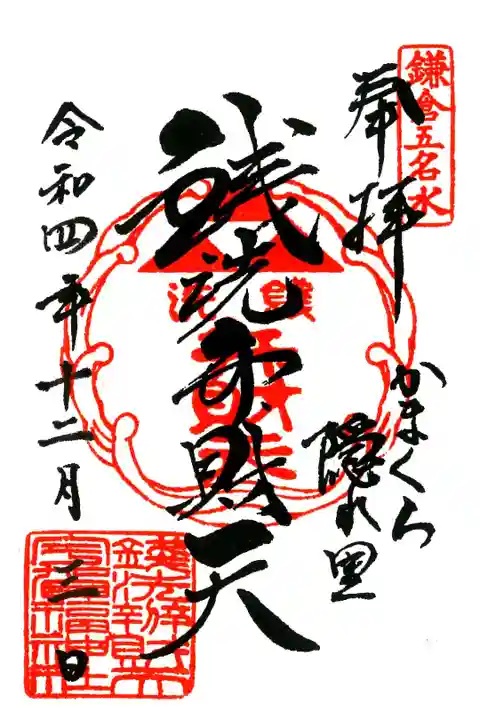 鎌倉五名水
奉拝
かまくら
隠れ里
銭洗弁財天
令和四年十二月三日